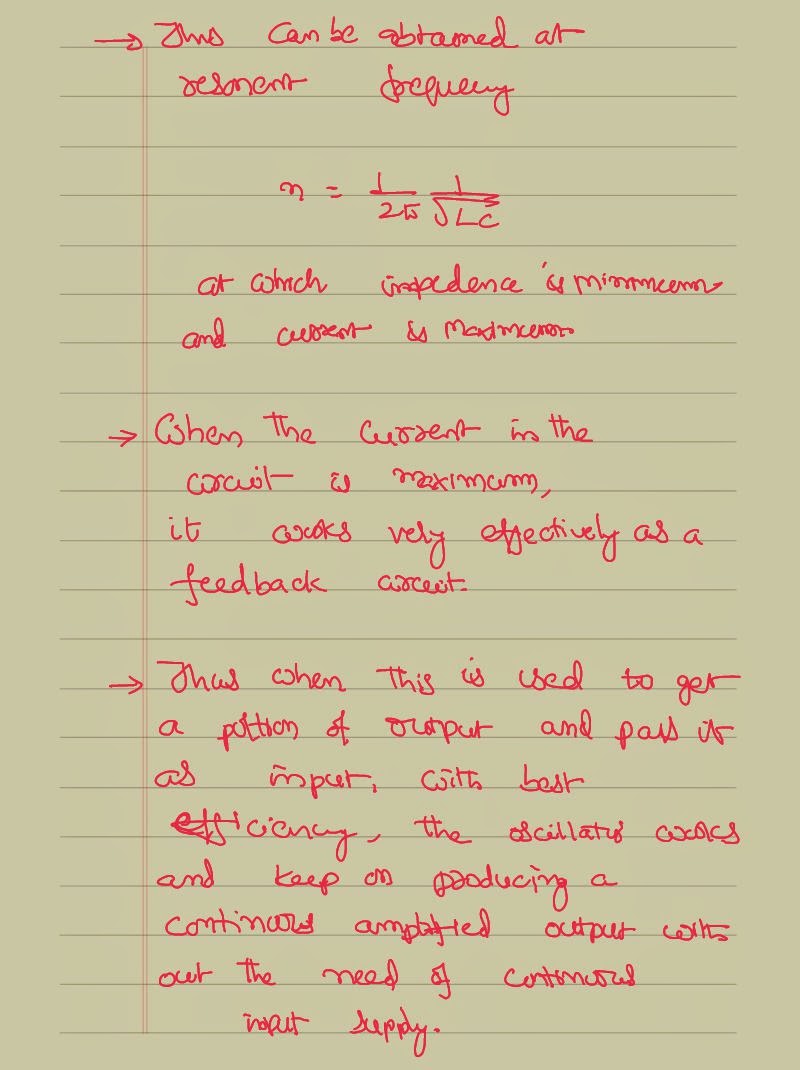 → This can be obtained at
resonent frequency
n = 1/2π 1/√LC
at which impedence is minimum
and current is maximum
→ When the current in the
circuit is maximum,
it works very effectively as a
feedback circuit.
→ Thus when this is used to get
a portion of output and pass it
as input, with best
efficiency, the oscillator works
and keep on producing a
continous amplified output with
out the need of continous
input supply.